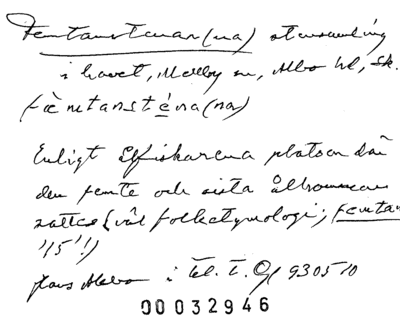 Femtanstenar(na) stensamling
i havet, Mellby sn, Albo hd, Sk.
Enligt ålfiskarena platsen där
den femte och sista ålhommeen
sattes (väl folketymologi; femtan
'15'!)
i Tel. T. Of 930510
00032946